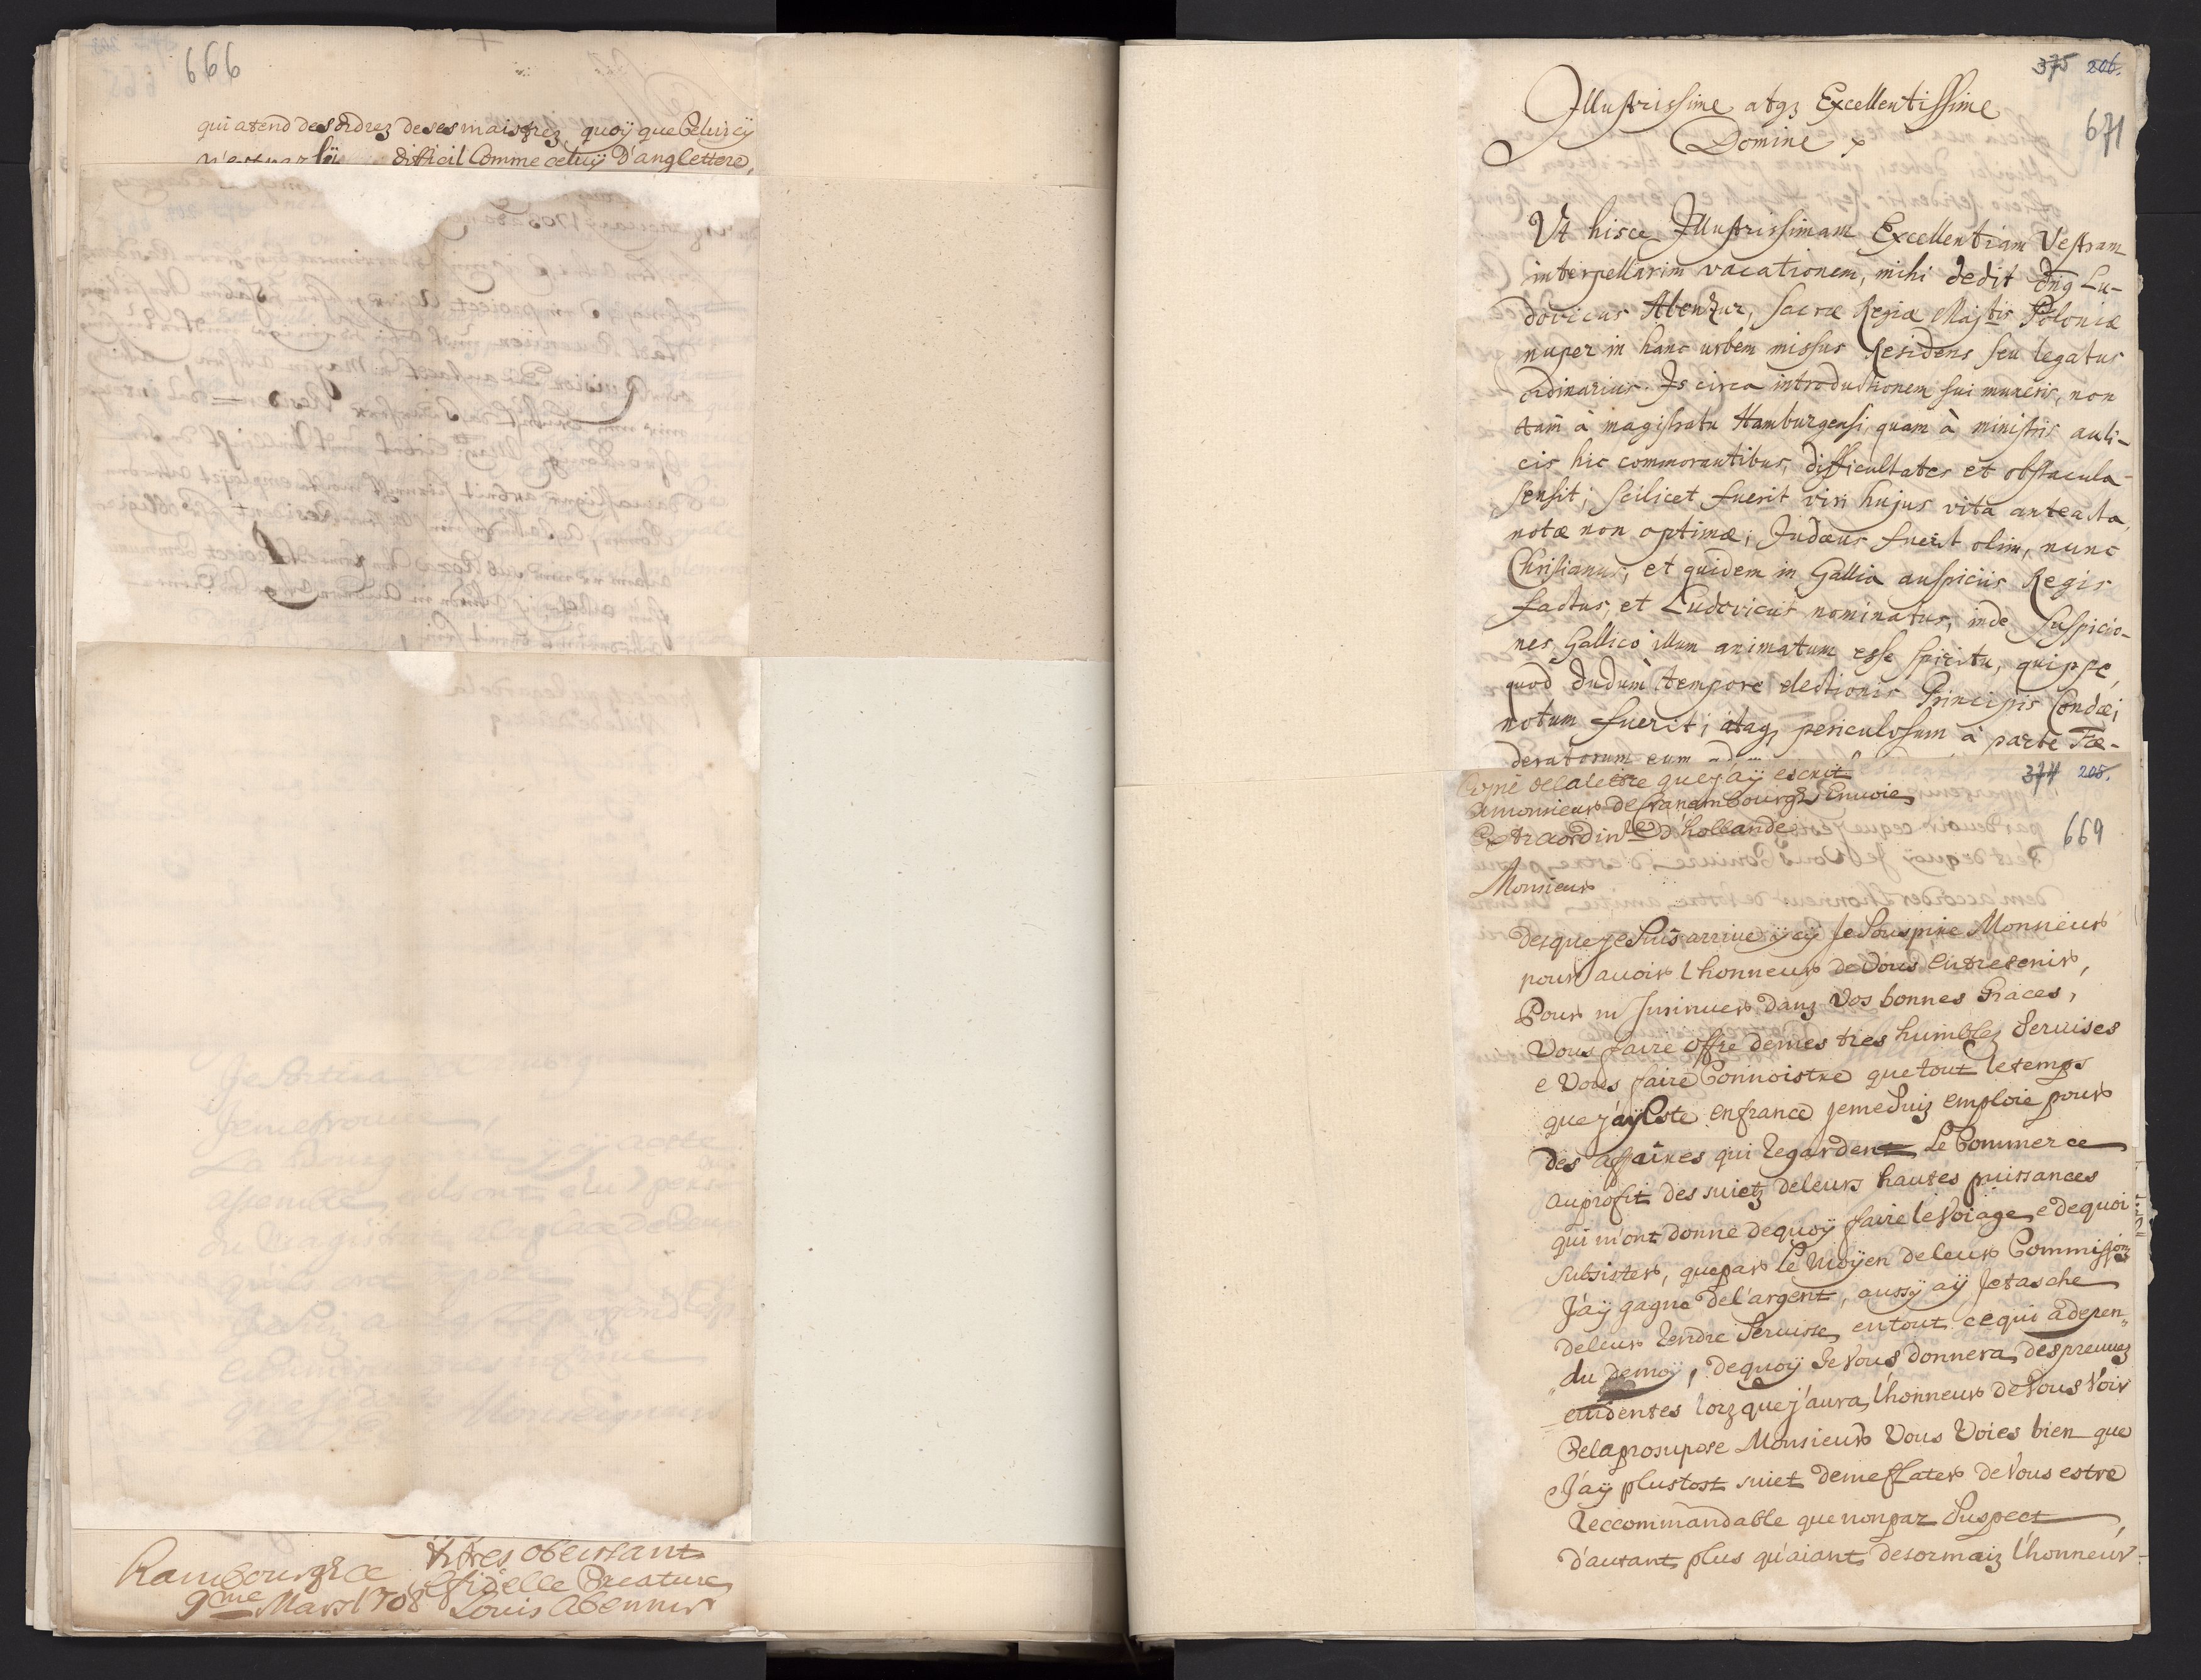 666
qui atend des ordrez de ses maistrez, quoÿ que Celuicÿ
difficil Comme celuÿ D'anglettere,
Hambourgh Ce
9me Mars 1708
tres obeissant
fidelle Creature
Louis Abenner
375 206.
671
Illustrissime atq3 Excellentissime
Domine
Ut hisce Illustrissimam Excellentiam Vestram
interpellarim vacationem, mihi dedit dn9 Lu-
dovicus Abenzur, Sacræ Regiæ Majtis Poloniæ
nuper in hanc urbem missus Residens seu legatus
ordinarius. Is circa introductionem sui muneris, non
tam à magistratu Hamburgensi, quam à ministris auli-
cis hic commorantibus, difficultates et obstacula
sensit; scilicet fuerit viri hujus vita anteacta,
notæ non optimæ; Judæus fuerit olim, nunc
Christianus, et quidem in Gallia auspiciis Regis
factus, et Ludovicus nominatus, inde suspicio-
nes, Gallico illum animatum esse spiritu, quippe,
quod dudum tempore electionis Principis Condæi
notum fuerit; itaq3 periculosum à parte Fæ-
deratorum eum
374 205.
669
Copie de la lettre que j'aÿ escrit
A monsieur de Cranambourgh Envoie
Extraordinre D'hollande
Monsieur
des que je Suis arrive ÿcÿ Je Souspire Monsieur
pour avoir l honneur de Vous entretenir,
Pour m Insinuer dans Vos bonnes Graces,
Vous faire offre de mes tres humbles Services
e Vous faire Connoistre que tout le temps
que j'aÿ Este en france je me Suis emploie pour
des affaires qui Regardent Le Commerce
au profit des suietz de leurs hautes puissances
qui m'ont donne de quoÿ faire le Voiage, e de quoi
Subsister, que par le Moÿen de leurs Commissions
J'aÿ gagne de l'argent, aussÿ aÿ Je tasche
de leur Rendre Servisse en tout ce qui a depen„
„du de moÿ, de quoÿ Je Vous donnera des preuves
evidentes lorz que j'aura l'honneur de Vous Voir
Cela prosupose Monsieur Vous Voies bien que
J'aÿ plustost suiet de me flater de Vous estre
Reccommandable que non par Suspect,
d'autant plus qu'aiant desormaiz l'honneur